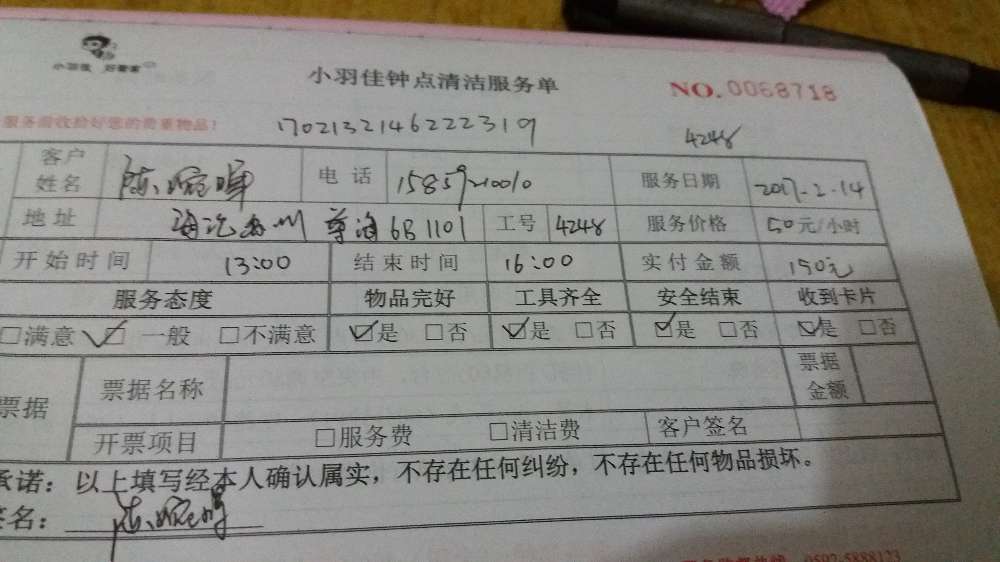 小羽佳 好管家
小羽佳钟点清洁服务单
NO.0068718
服务前收拾好您的贵重物品!
1702132146222319
4248
客户姓名 陈 电话 服务日期 2017.2.14
地址 6B1101 工号 4248 服务价格 50元/小时
开始时间 13:00 结束时间 16:00 实付金额 150元
服务态度 物品完好 工具齐全 安全结束 收到卡片
□满意 ☑一般 □不满意 ☑是 □否 ☑是 □否 ☑是 □否 ☑是 □否
票据 票据名称 票据金额
开票项目 □服务费 □清洁费 客户签名
承诺：以上填写经本人确认属实，不存在任何纠纷，不存在任何物品损坏。
签名：陈
0592-5888123